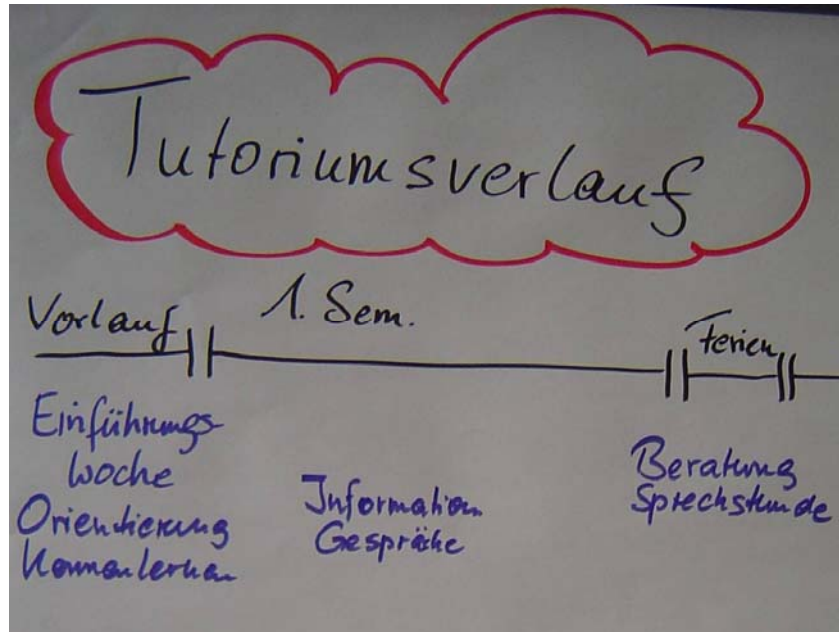 Tutoriumsverlauf
Vorlauf
1. Sem.
Ferien
Einführungs-
woche
Orientierung
Kennenlernen
Information
Gespräche
Beratung
Sprechstunde